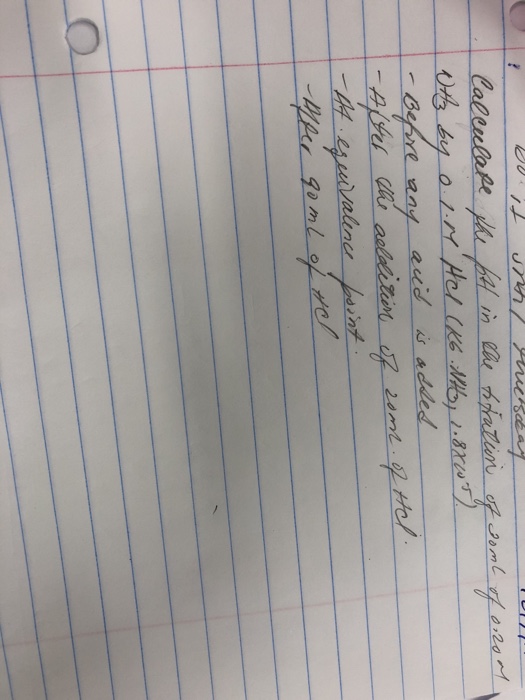 Calculate the pH in the titration of 20mL of 0.20M
NH3 by 0.1M HCl (Kb NH3, 1.8x10-5).
- Before any acid is added
- After the addition of 20ml. of Hcl.
- At equivalence point.
- After 90ml of Hcl